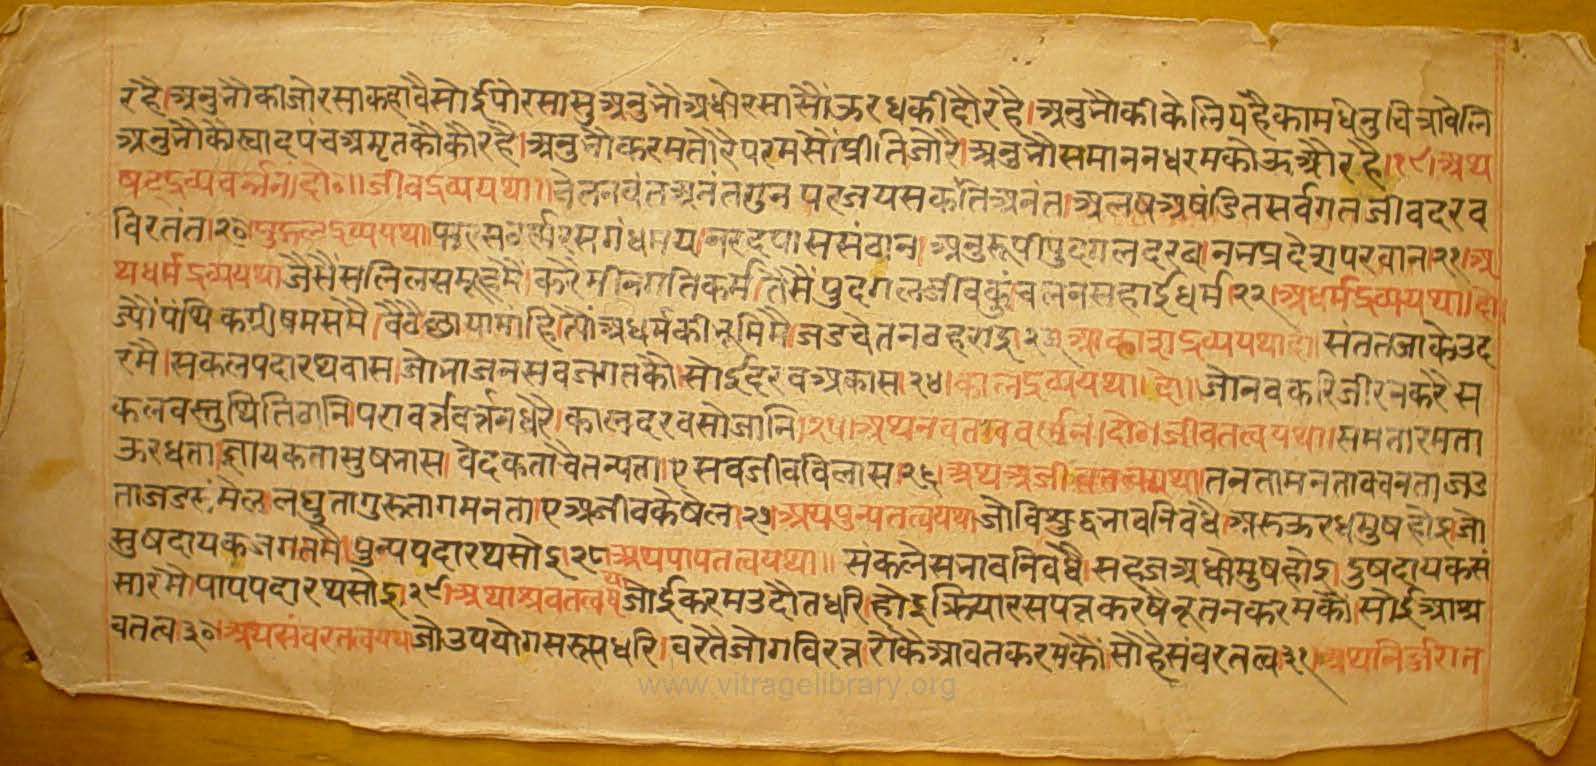 रहै।अनुभौकीजोरसाकहावैसोईपोरसासुअनुभौअधोरसासौंऊरधकीदौरहै।अनुभौकीकेलियहैकामधेनुचित्रावेलि
अनुभौकोस्वादपंचअमृतकौकौरहै।अनुभौकरमतोरैपरमसौंप्रीतिजोरै।अनुभौसमाननधरमकोऊऔरहै।१९।अथ
षटद्रव्यवर्नन।दो०॥जीवद्रव्ययथा॥चेतनवंतअनंतगुन पर्जयसकतिअनंत।अलषअषंडितसर्वगतजीवदरव
विरतंत।२०।पुद्गलद्रव्ययथा।फरसवर्णरसगंधमय।नरदपाससंठान।अनुरूपीपुदगलदरव।नभप्रदेशपरवान।२१।अ
थधर्मद्रव्ययथाजैसैंसलिलसमूहमैं।करैमीनगतिकर्म।तैसैंपुदगलजीवकुंचलनसहाईधर्म।२२।अधर्मद्रव्ययथा।दो।
ज्यौंपंथिकग्रीषमसमै।बैठैछायामांहि।त्यौंअधर्मकीभूमिमैजडचेतनठहरांइ।२३।आकाशद्रव्ययथादो। संततजाकेउद
रमै।सकलपदारथवास।जोभाजनसवजगतकौ।सोईदरवअकास।२४।कालद्रव्ययथा।दो।जोनवकरिजीरनकरैस
कलवस्तुथितिठांनि।परावर्त्तवर्त्तनधरै।कालदरवसोजानि।२५।अथनवतत्ववर्णनं।दो०।जीवतत्वयथा।समतारमता
ऊरधता।ज्ञायकतासुषभास। वेदकताचैतन्यता।एसवजीवविलास।२६।अथअजीवतत्वयथा।तनतामनतावचनताजड
ताजडसंमेल।लघुतागुरुतागमनता।एअजीवकेषेल।२७।अथपुन्यतत्वयथाजौविशुद्धभावनिबधै।अरुऊरधमुषहोइ।जो
सुषदायकजगतमै।पुन्यपदारथसोइ।२८।अथपापतत्वयथा॥ संकलेसभावनिबंधै।सहजअधोमुषहोइ।दुषदायकसं
सारमै।पापपदारथसोइ।२९।अथाश्रवतत्वयथाजोईकरमउदौतधरि।होइक्रियारसपत्त।करषैनूतनकरमकौ।सोईआश्र
वतत्व।३०।अथसंवरतत्वयथाजौउपयोगसरूपधरि।वरतैजोगविरत्त।रोकैआवतकरमकौं।सोहैसंवरतत्व।३१।अथनिर्जरात
www.vitragelibrary.org